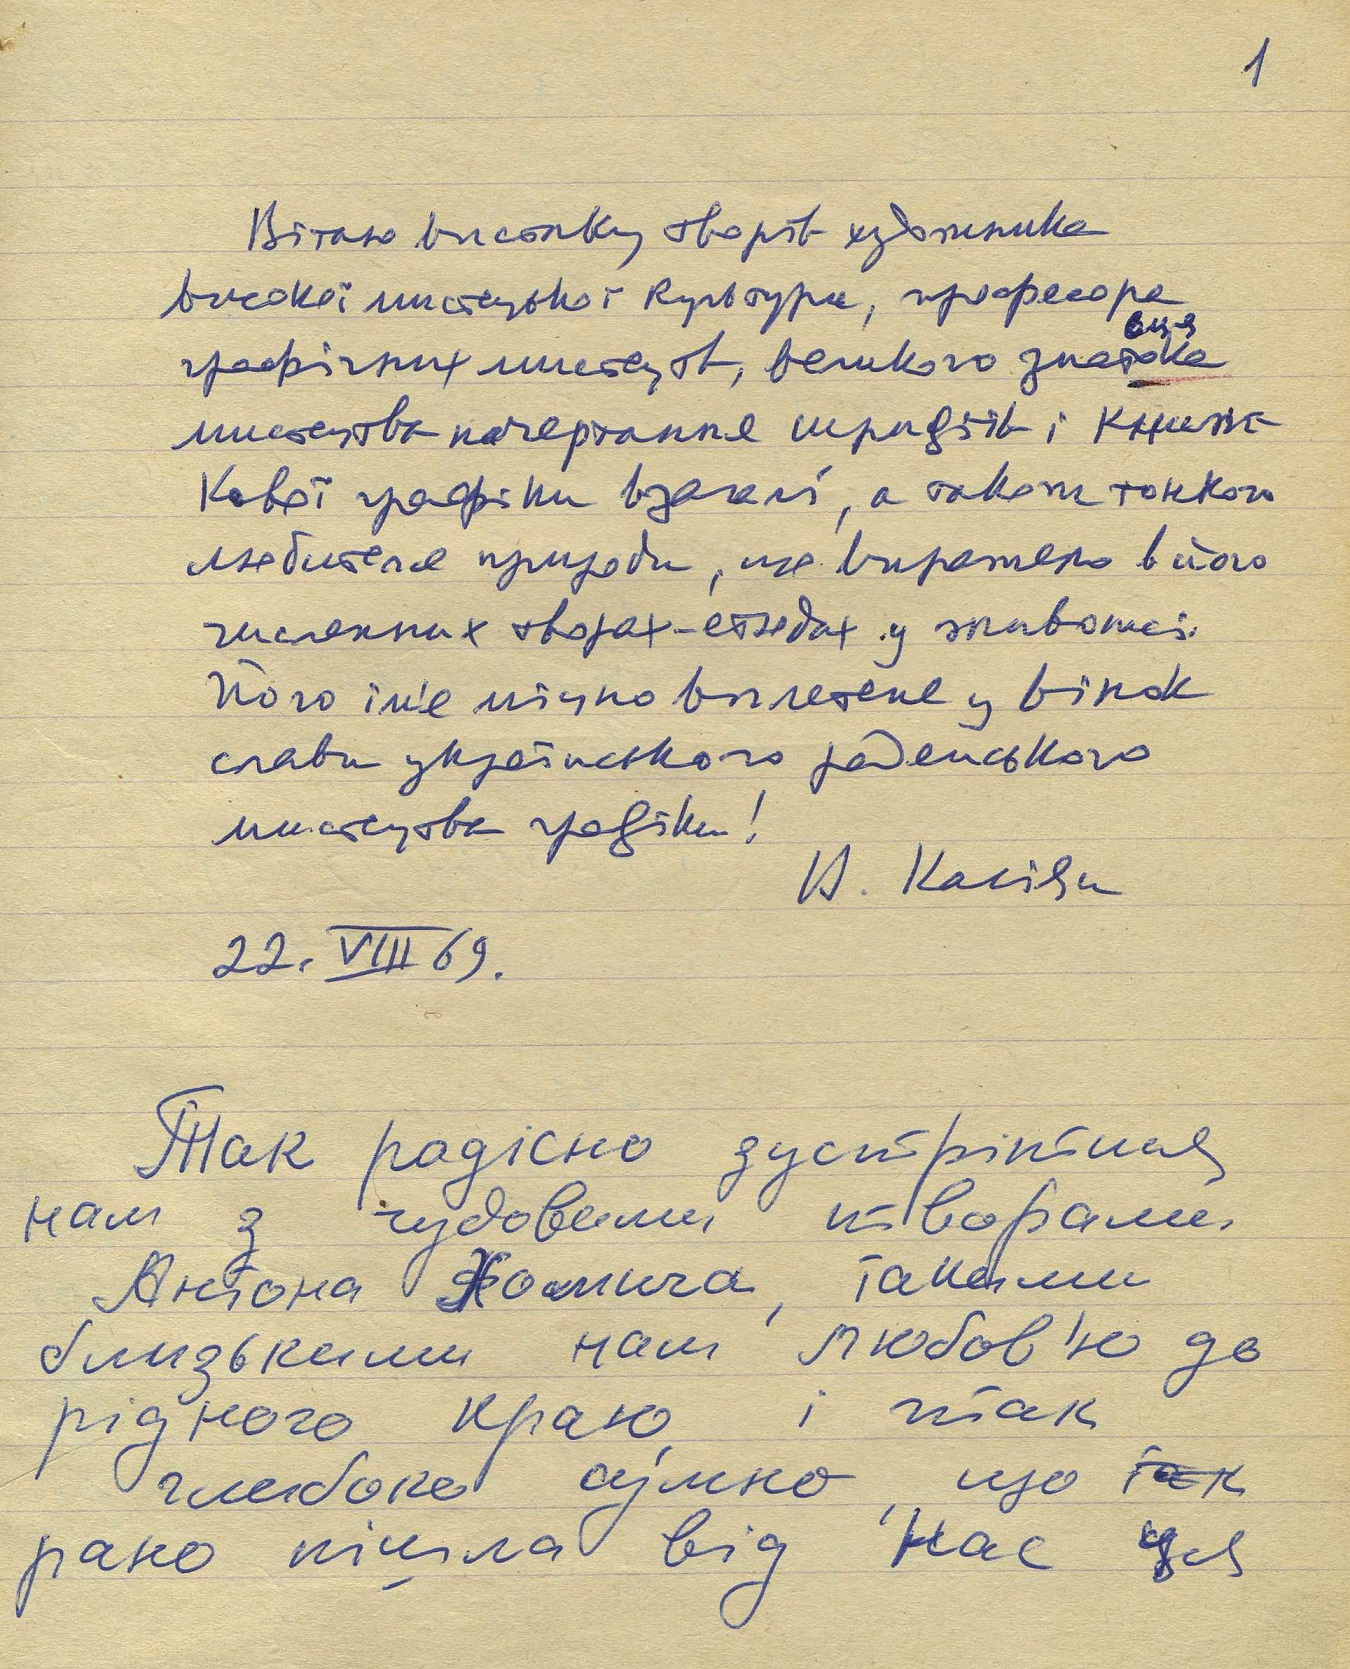 1
Вітаю виставку творів художника
високої мистецької культури, професора
вця
графічних мистецтв, великого знатока
мистецтва начертання шрифтів і книж-
кової графіки взагалі, а також тонкого
любителя природи, що виражено в його
численних творах-етюдах у живописі.
Його ім'я міцно вплетене у вінок
слави українського радянського
мистецтва графіки!
22. VIII 69.
Так радісно зустрітися
нам з чудовими творами
Антона Хомича, такими
близькими нам любов'ю до
рідного краю, і так
глибоко сумно, що так
рано пішла від нас ця